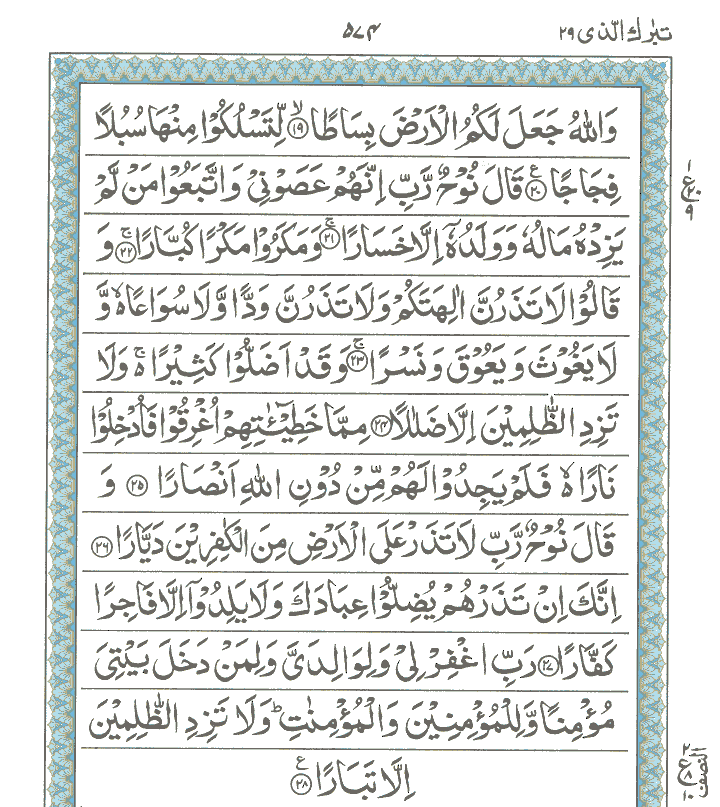 تبٰرك الذی ٢٩
٥٧٤
وَاللّٰهُ جَعَلَ لَكُمُ الْاَرْضَ بِسَاطًا ۙ﴿١٩﴾ لِّتَسْلُكُوْا مِنْهَا سُبُلًا
فِجَاجًا ﴿٢٠﴾ع قَالَ نُوْحٌ رَّبِّ اِنَّهُمْ عَصَوْنِیْ وَاتَّبَعُوْا مَنْ لَّمْ
یَزِدْهُ مَالُهٗ وَوَلَدُهٗۤ اِلَّا خَسَارًا ۚ﴿٢١﴾ وَمَكَرُوْا مَكْرًا كُبَّارًا ۚ﴿٢٢﴾ وَ
قَالُوْا لَا تَذَرُنَّ اٰلِهَتَكُمْ وَلَا تَذَرُنَّ وَدًّا وَّلَا سُوَاعًا ۙ۬ وَّ
لَا یَغُوْثَ وَیَعُوْقَ وَنَسْرًا ۚ﴿٢٣﴾ وَقَدْ اَضَلُّوْا كَثِیْرًا ۬ۚ وَلَا
تَزِدِ الظّٰلِمِیْنَ اِلَّا ضَلٰلًا ﴿٢٤﴾ مِمَّا خَطِیْٓـٰٔتِهِمْ اُغْرِقُوْا فَاُدْخِلُوْا
نَارًا ۬ۙ فَلَمْ یَجِدُوْا لَهُمْ مِّنْ دُوْنِ اللّٰهِ اَنْصَارًا ﴿٢٥﴾ وَ
قَالَ نُوْحٌ رَّبِّ لَا تَذَرْ عَلَی الْاَرْضِ مِنَ الْكٰفِرِیْنَ دَیَّارًا ﴿٢٦﴾
اِنَّكَ اِنْ تَذَرْهُمْ یُضِلُّوْا عِبَادَكَ وَلَا یَلِدُوْۤا اِلَّا فَاجِرًا
كَفَّارًا ﴿٢٧﴾ رَبِّ اغْفِرْ لِیْ وَلِوَالِدَیَّ وَلِمَنْ دَخَلَ بَیْتِیَ
مُؤْمِنًا وَّلِلْمُؤْمِنِیْنَ وَالْمُؤْمِنٰتِ ؕ وَلَا تَزِدِ الظّٰلِمِیْنَ
اِلَّا تَبَارًا ﴿٢٨﴾ع
١
ع ٢٠
٩
٢
ع ٨
١٠
النصف